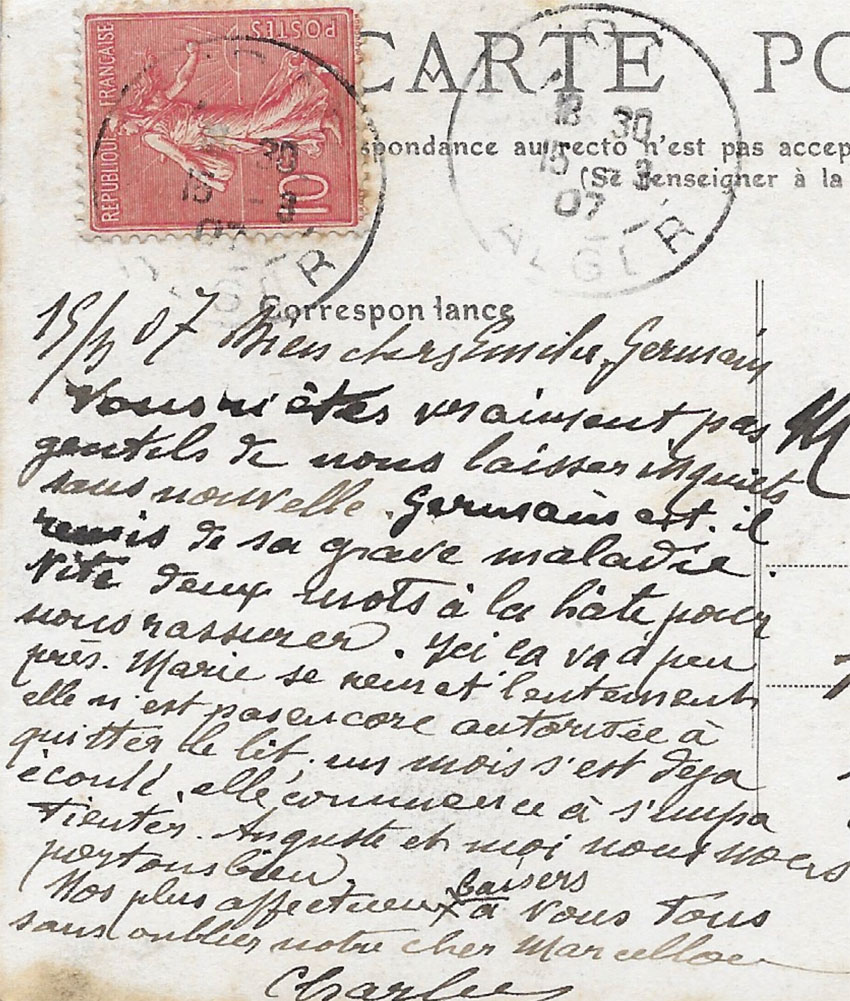 RÉPUBLIQUE FRANÇAISE
POSTES
10
18 30
15 - 3
07
ALGER
CARTE PO
18 30
15 - 3
07
ALGER
spondance au recto n'est pas accep
(Se renseigner à la
Correspondance
15/3 07 Bien chers Emilie, Germain
Vous n'êtes vraiment pas
gentils de nous laisser inquiets
sans nouvelle. Germain est-il
remis de sa grave maladie.
Vite deux mots à la hâte pour
nous rassurer. Ici ça va à peu
près. Marie se remet lentement
elle n'est pas encore autorisée à
quitter le lit, un mois s'est deja
écoulé, elle commence à s'impa
tienter. Auguste et moi nous nous
portons bien.
Nos plus affectueux baisers à vous tous
sans oublier notre cher
Charles
M